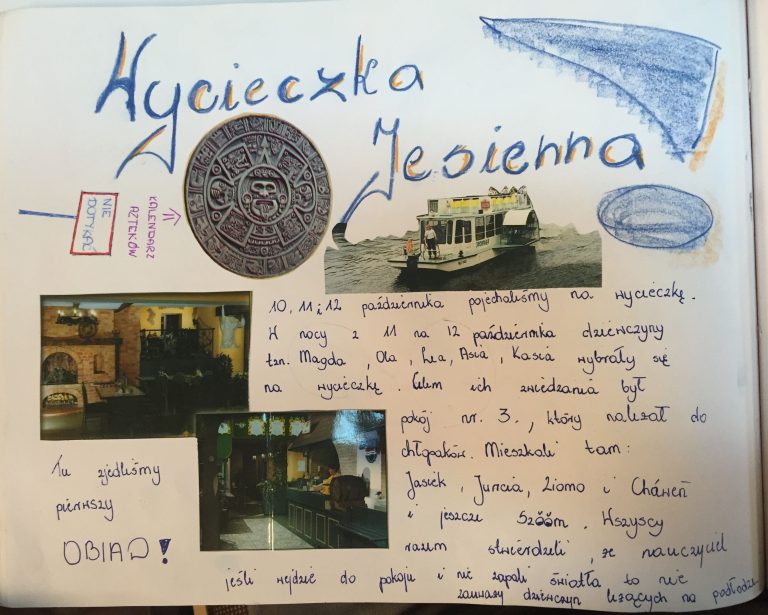 Wycieczka
Jesienna
NIE
DOTYKAĆ
KALENDARZ
AZTEKÓW
10, 11 i 12 października pojechaliśmy na wycieczkę.
W nocy z 11 na 12 października dziewczyny
tzn. Magda, Ola, Lea, Asia, Kasia wybrały się
na wycieczkę. Celem ich zwiedzania był
pokój nr. 3., który należał do
chłopaków. Mieszkali tam:
Jasiek, Juncia, Ziomo i
i jeszcze Wszyscy
razem stwierdzili, że nauczyciel
jeśli wejdzie do pokoju i nie zapali światła to nie
zauważy dziewczyn leżących na podłodze
Tu zjedliśmy
pierwszy
OBIAD!